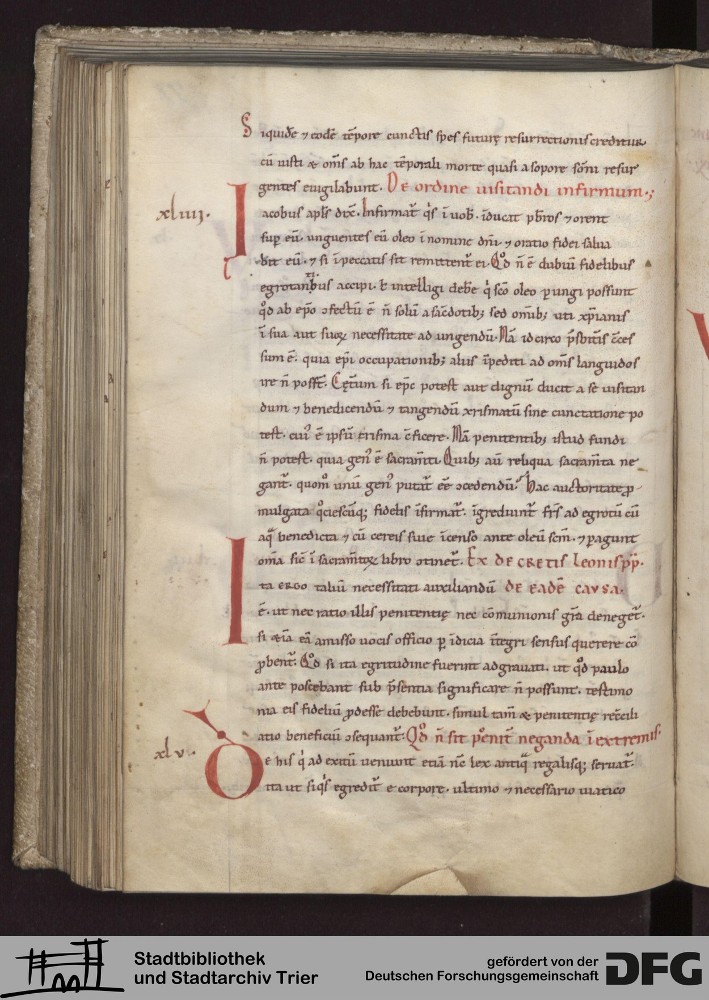 Siquidē ⁊ eodē tēpore cunctis spes futurę resurrectionis creditur
cū iusti & om̄s ab hac tēporali morte quasi a sopore sōni resur
gentes euigilabunt. De ordine uisitandi infirmum.
xliiij.
Iacobus apl's dix̄. Infirmat' q's i uob'. iducat pb'ros ⁊ orent
sup eū. unguentes eū oleo i nomine dn̄i. ⁊ oratio fidei salua
bit eū. ⁊ si i peccatis sit remittent' ei. Qd n̄ ē dubiū fidelibus
egrotantibus accipi. t intelligi debe q sc̄o oleo pungi possunt
qd ab epo ↄfectū ē n̄ solū a sacdotib; sed om̄ib; uti xp̄ianis
i sua aut suoꝝ necessitate ad ungendū. Nā idcirco p̄sbit'is c̄ces
sum ē. quia epi occupationib; aliis ipediti ad om̄s languidos
ire n̄ poss̄t. Cęt'um si epc potest aut dignū ducit a se uisitan
dum ⁊ benedicendū ⁊ tangendū xrismatū sine cunctatione po
test. cui' ē ipsū crisma c̄ficere. Nā penitentib; istud fundi
n̄ potest. quia gen' ē sacram̄ti. Quib; aū reliqua sacram̄ta ne
gant'. quom' unū gen' putat' ēē ↄcedendū. Hac auctoritate p
mulgata qciescūq; fidelis ifirmat'. igrediunt' fr̄s ad egrotū cū
aq benedicta ⁊ cū cereis siue icenso ante oleū sc̄m. ⁊ pagunt
om̄a sic i sacram̄toꝝ libro ↄtinet'. Ex decretis leonis pp.
Ita ergo taliū necessitati auxiliandū de eadē causa.
ē. ut nec ratio illis penitentię nec cōmunionis gr̄a deneget'.
si &iā eā amisso uocis officio p idicia itegri sensus querere cō
pbent'. Qd si ita egritudine fuerint adgrauati. ut qd paulo
ante poscebant sub p̄sentia significare n̄ possunt. testimo
nia eis fideliū pdesse debebunt. simul tam̄ & penitentię recōcili
atio beneficiū ↄsequant'. Qd n̄ sit penit' neganda i extremis.
xlv.
De his q ad exitū ueniunt etiā n̄c lex antiq regalisq; seruat'.
ita ut siq's egredit' e corpore. ultimo ⁊ necessario uiatico
Stadtbibliothek
und Stadtarchiv Trier
gefördert von der
Deutschen Forschungsgemeinschaft
DFG